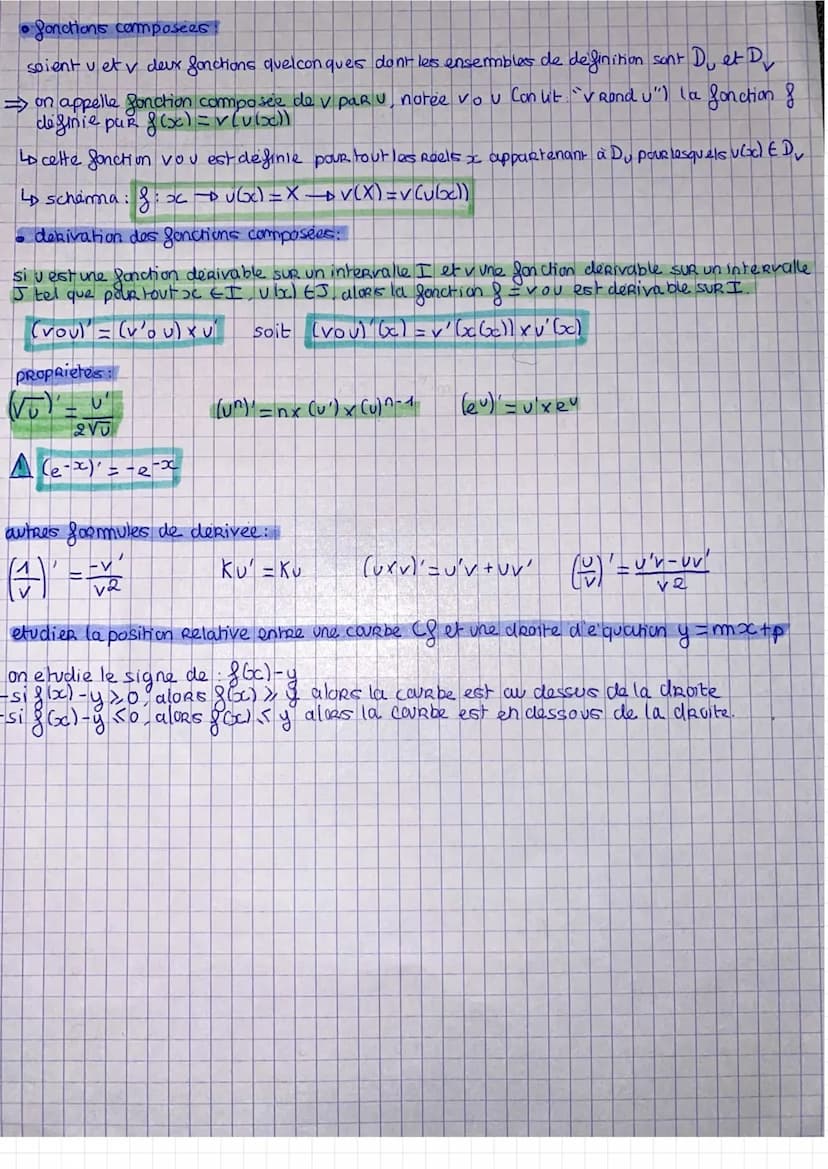 • fonctions composées:
soient u et v deux fonctions quelconques dont les ensembles de définition sont Du et Dv
⇒ on appelle fonction composée de v par u, notée v o u (on lit "v rond u") la fonction f
définie par f(x) = v(u(x))
↳ cette fonction v o u est définie pour tout les réels x appartenant à Du pour lesquels u(x) ∈ Dv
↳ schéma: f: x → u(x) = X → v(X) = v(u(x))
• dérivation des fonctions composées:
si u est une fonction dérivable sur un intervalle I et v une fonction dérivable sur un intervalle
J tel que pour tout x ∈ I, u(x) ∈ J, alors la fonction f = v o u est dérivable sur I.
(v o u)' = (v' o u) x u' soit (v o u)'(x) = v'(x(x)) x u'(x)
propriétés:
(√u)' = u'/2√u (uⁿ)' = n x (u') x (u)ⁿ⁻¹ (eᵘ)' = u' x eᵘ
⚠ (e⁻ˣ)' = -e⁻ˣ
autres formules de dérivée:
(1/v)' = -v'/v² Ku' = Ku (u x v)' = u'v + uv' (u/v)' = u'v - uv'/v²
etudier la position relative entre une courbe Cf et une droite d'équation y = mx + p
on etudie le signe de: f(x) - y
- si f(x) - y ≥ 0, alors f(x) ≥ y alors la courbe est au dessus de la droite
- si f(x) - y ≤ 0, alors f(x) ≤ y alors la courbe est en dessous de la droite.